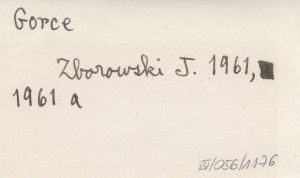 Gorce
Zborowski J. 1961,
1961 a
IV/056/1176